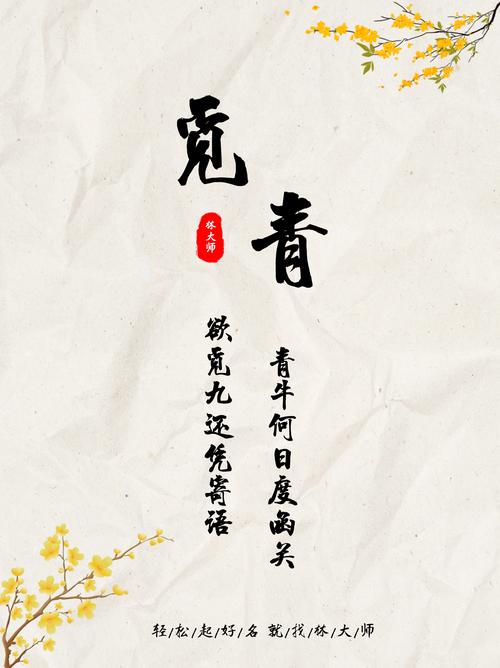 觅
青
林大师
欲觅九还凭寄语
青牛何日度函关
轻/松/起/好/名 就/找/林/大/师